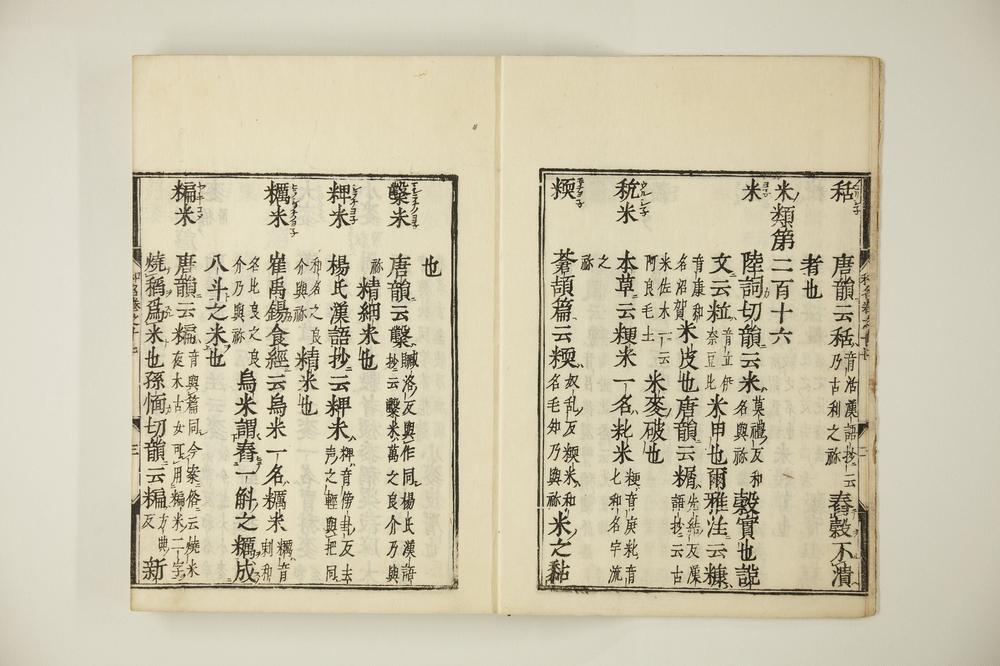 䅥 唐韻云䅥 音活漢語抄云
乃古利之祢 舂穀不潰
者也
米類第二百十六
米 陸詞切韻云米 莫禮反和
名與祢 穀實也說
文云粒 音立伊
奈豆比 米甲也爾雅注云糠
音康和
名沼賀 米皮也唐韻云糏 先結反漢
語抄云古
米佐木一云
阿良毛土 米麥破也
粳米 本草云粳米一名秔米 粳音庚秔音
七和名宇流
之
祢
糯 蒼頡篇云糯 奴乱反糯米和
名毛知乃與祢 米之黏
也
糳米 唐韻云糳 臧洛反與作同楊氏漢語
抄云糳米萬之良介乃與
祢 精細米也
粺米 楊氏漢語抄云粺米 粺音傍卦反去
声之輕與把同
和名之良
介與祢 精米也
糲米 崔禹錫食經云烏米一名糲米 糲音
剌和
名比良之良
介乃與祢 烏米謂舂一斛之糲成
八斗之米也
糄米 唐韻云糄 音與篇同今案俗云燒米
夜木古女可用糄米二字
燒稻爲米也孫愐切韻云糄 方典
反 新